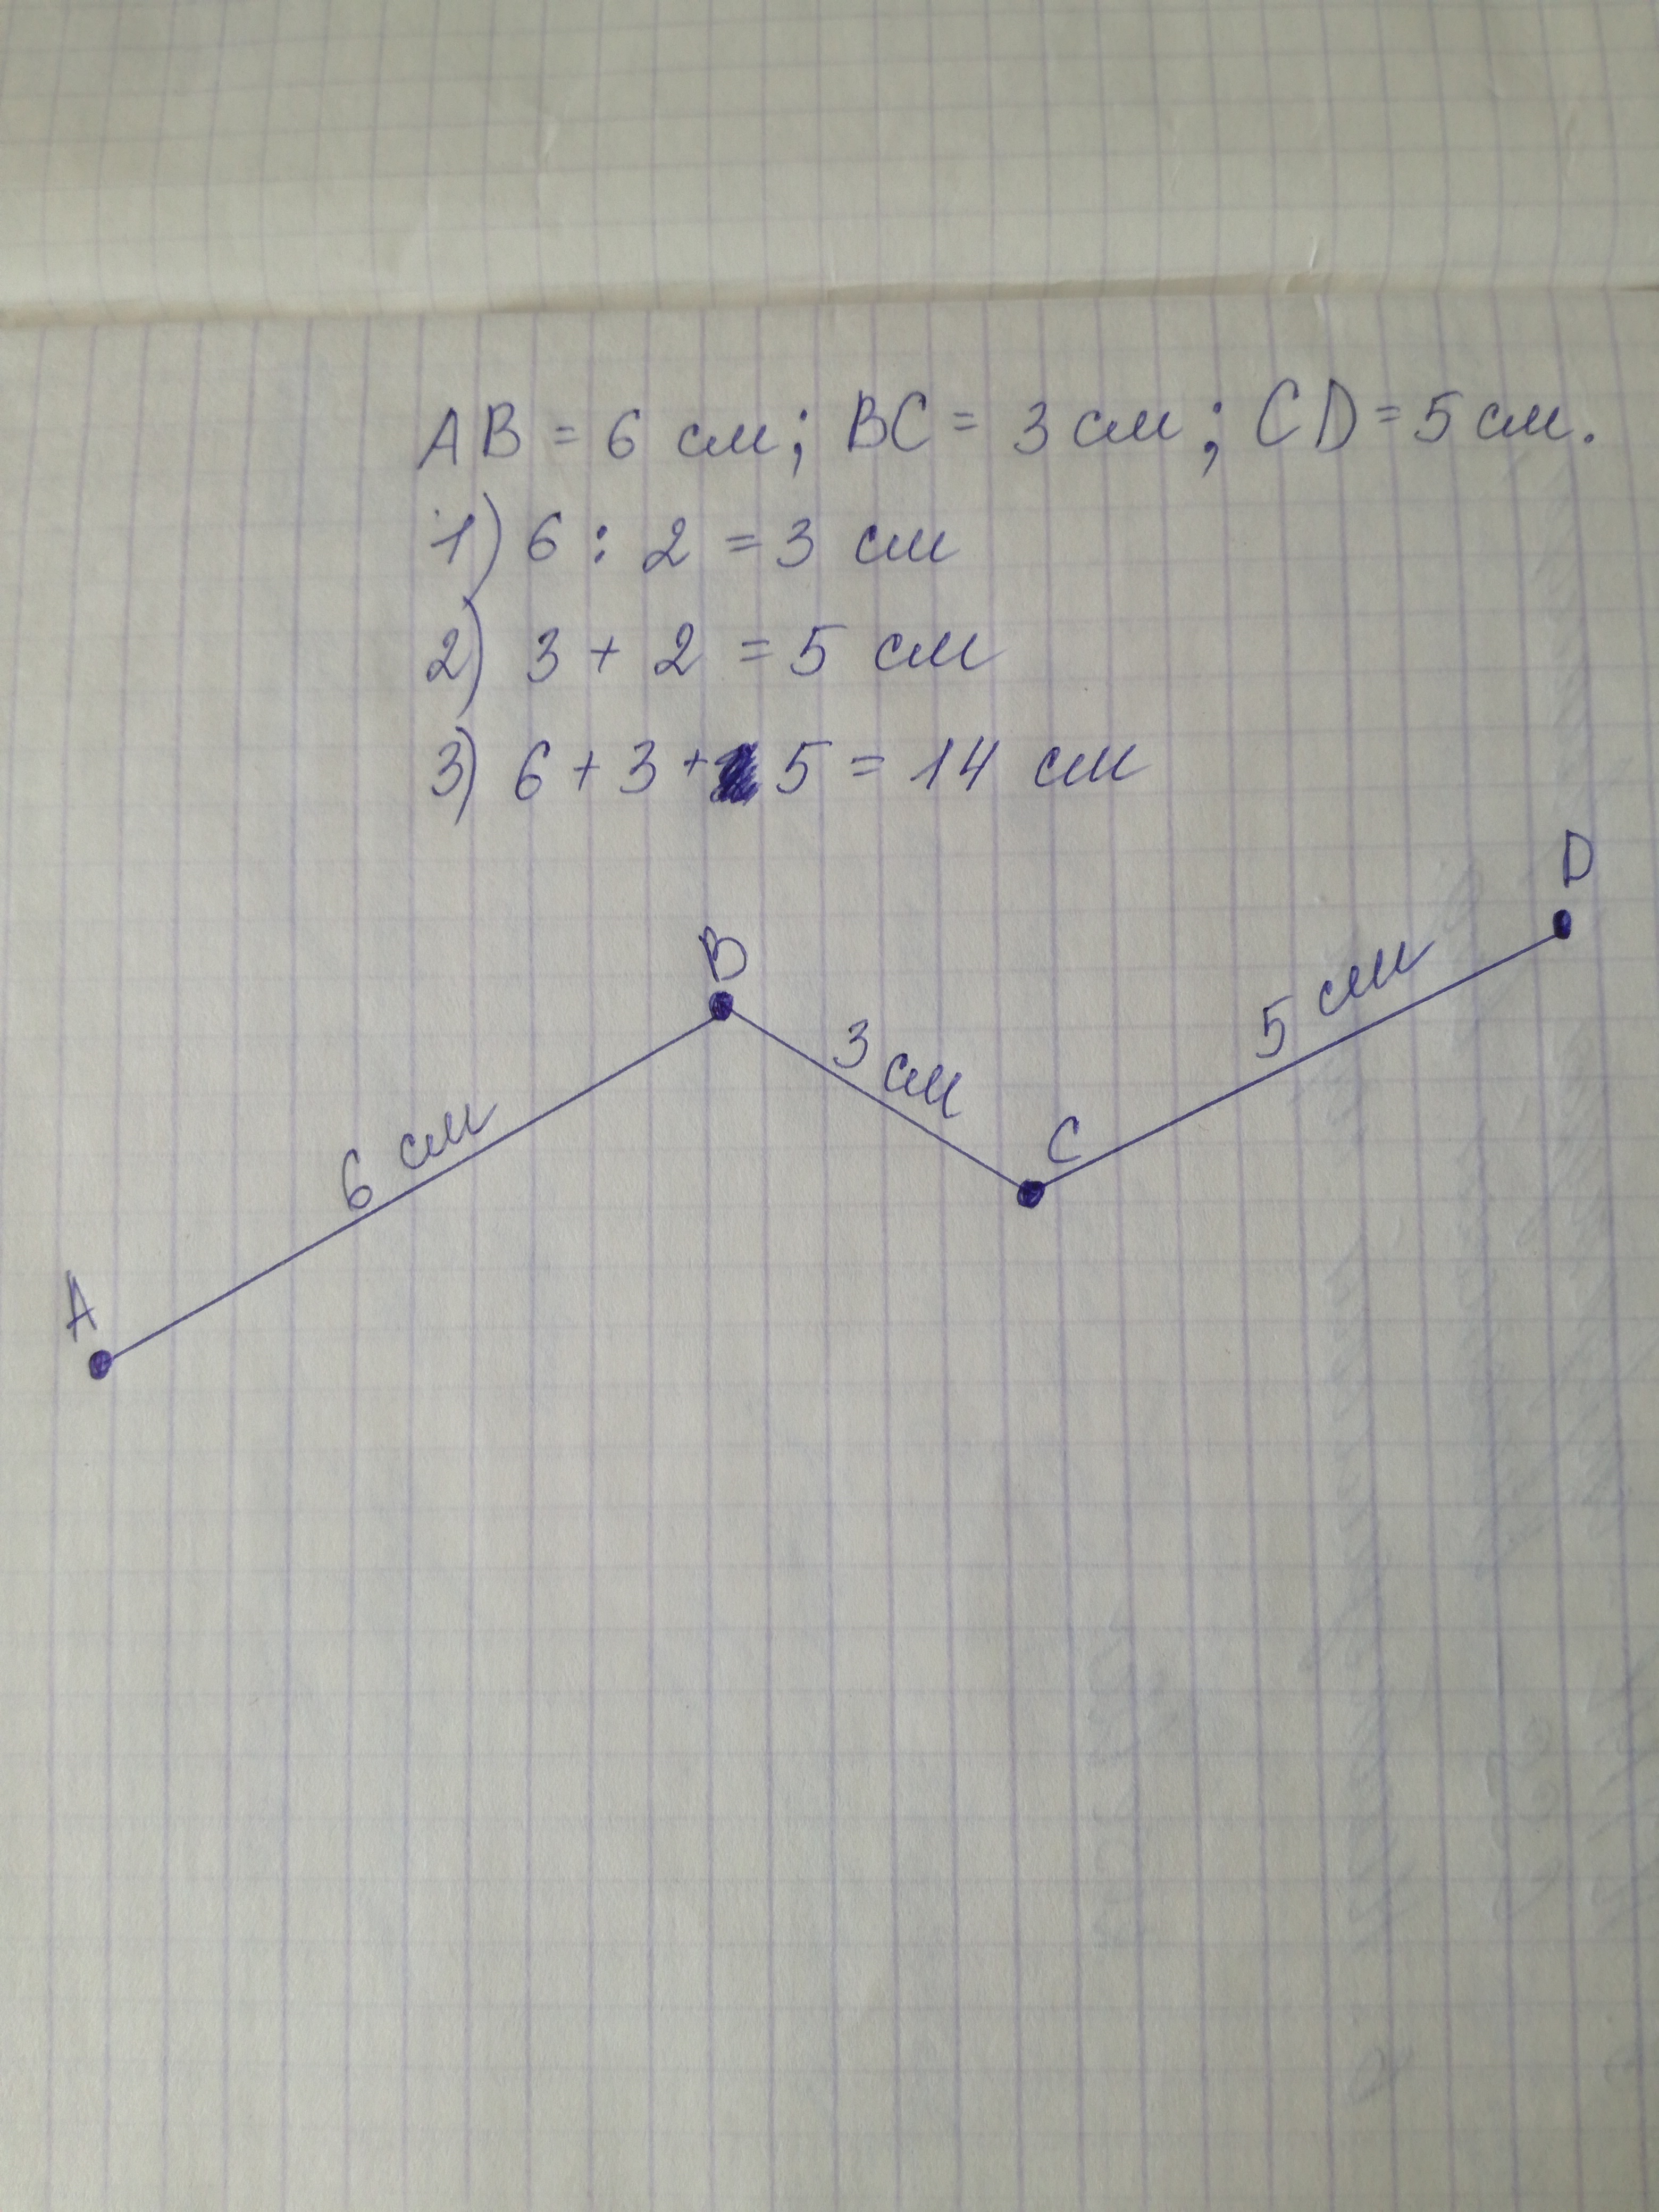 AB = 6 см; BC = 3 см; CD = 5 см.
1) 6 : 2 = 3 см
2) 3 + 2 = 5 см
3) 6 + 3 + 5 = 14 см
D
B
5 см
3 см
C
6 см
A